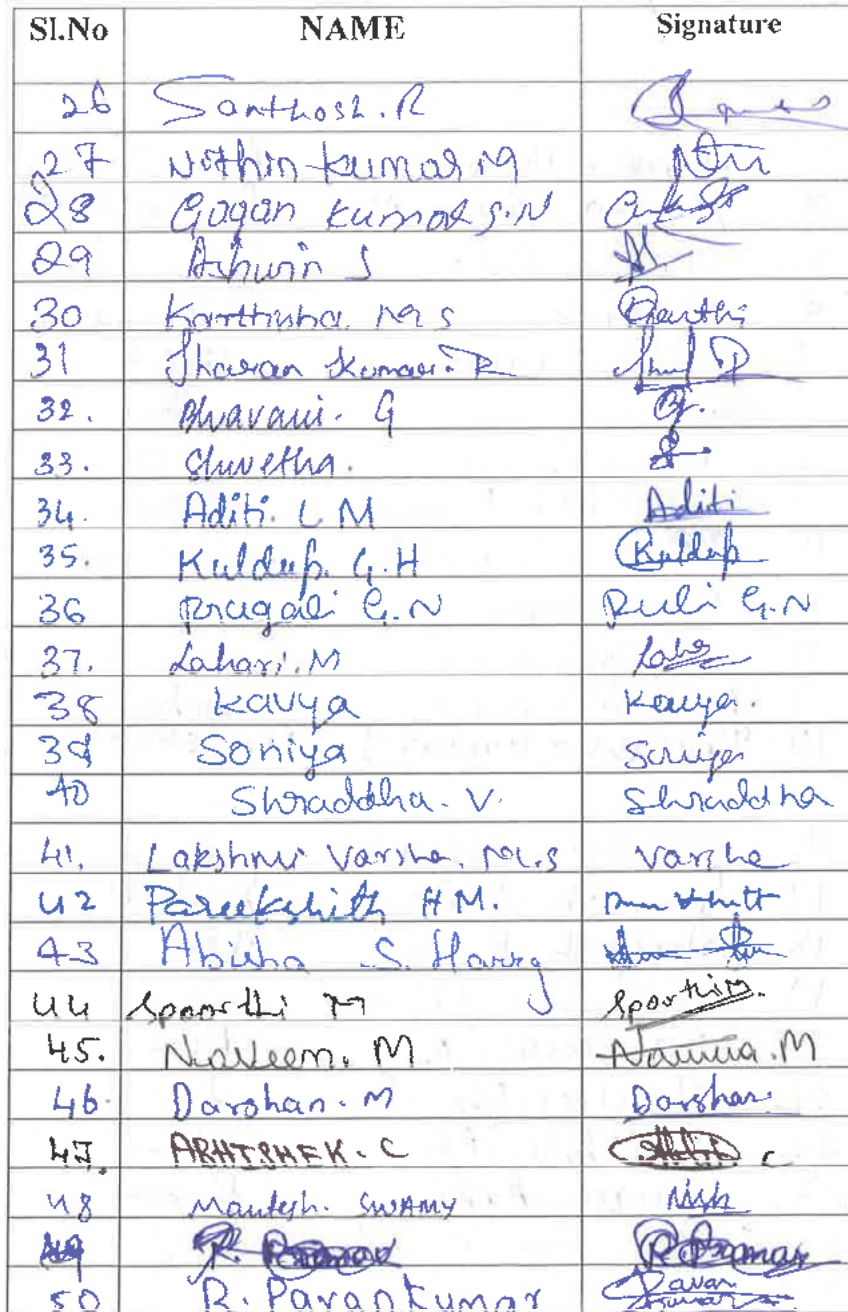 Sl.No NAME Signature
26 Santhosh.R
27 Nithin kumar M
28 Gagan Kumar S.N
29 Ashwin S
30 Karthisha M S
31 Sharan Kumar. R
32. Bhavani. G
33. Shwetha.
34. Aditi. L M Aditi
35. Kuldeep. G.H Kuldeep
36 Pragati G.N G.N
37. Lahari.M
38 Kavya Kavya.
39 Soniya Soniya
40 Shraddha. V. Shraddha
41. Lakshmi Varsha. M.S Varsha
42 Pareekshith HM.
43 Abisha S. Harry
44 Spoorthi M Spoorthi M.
45. Naveen. M M
46 Darshan. M Darshan
47. ABHISHEK. C C
48 Mantesh. SWAMY
49
50 R. Pavan kumar Pavan kumar